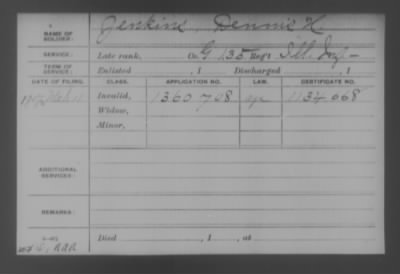 NAME OF SOLDIER: Jenkins, Dennis H
SERVICE: Late rank, Co. G, 135 Reg't Ill. Inf
TERM OF SERVICE: Enlisted , 1 Discharged , 1
DATE OF FILING. CLASS. APPLICATION NO. LAW. CERTIFICATE NO.
Invalid, 1360708 1134068
Widow,
Minor,
ADDITIONAL SERVICES:
REMARKS:
Died , 1 , at